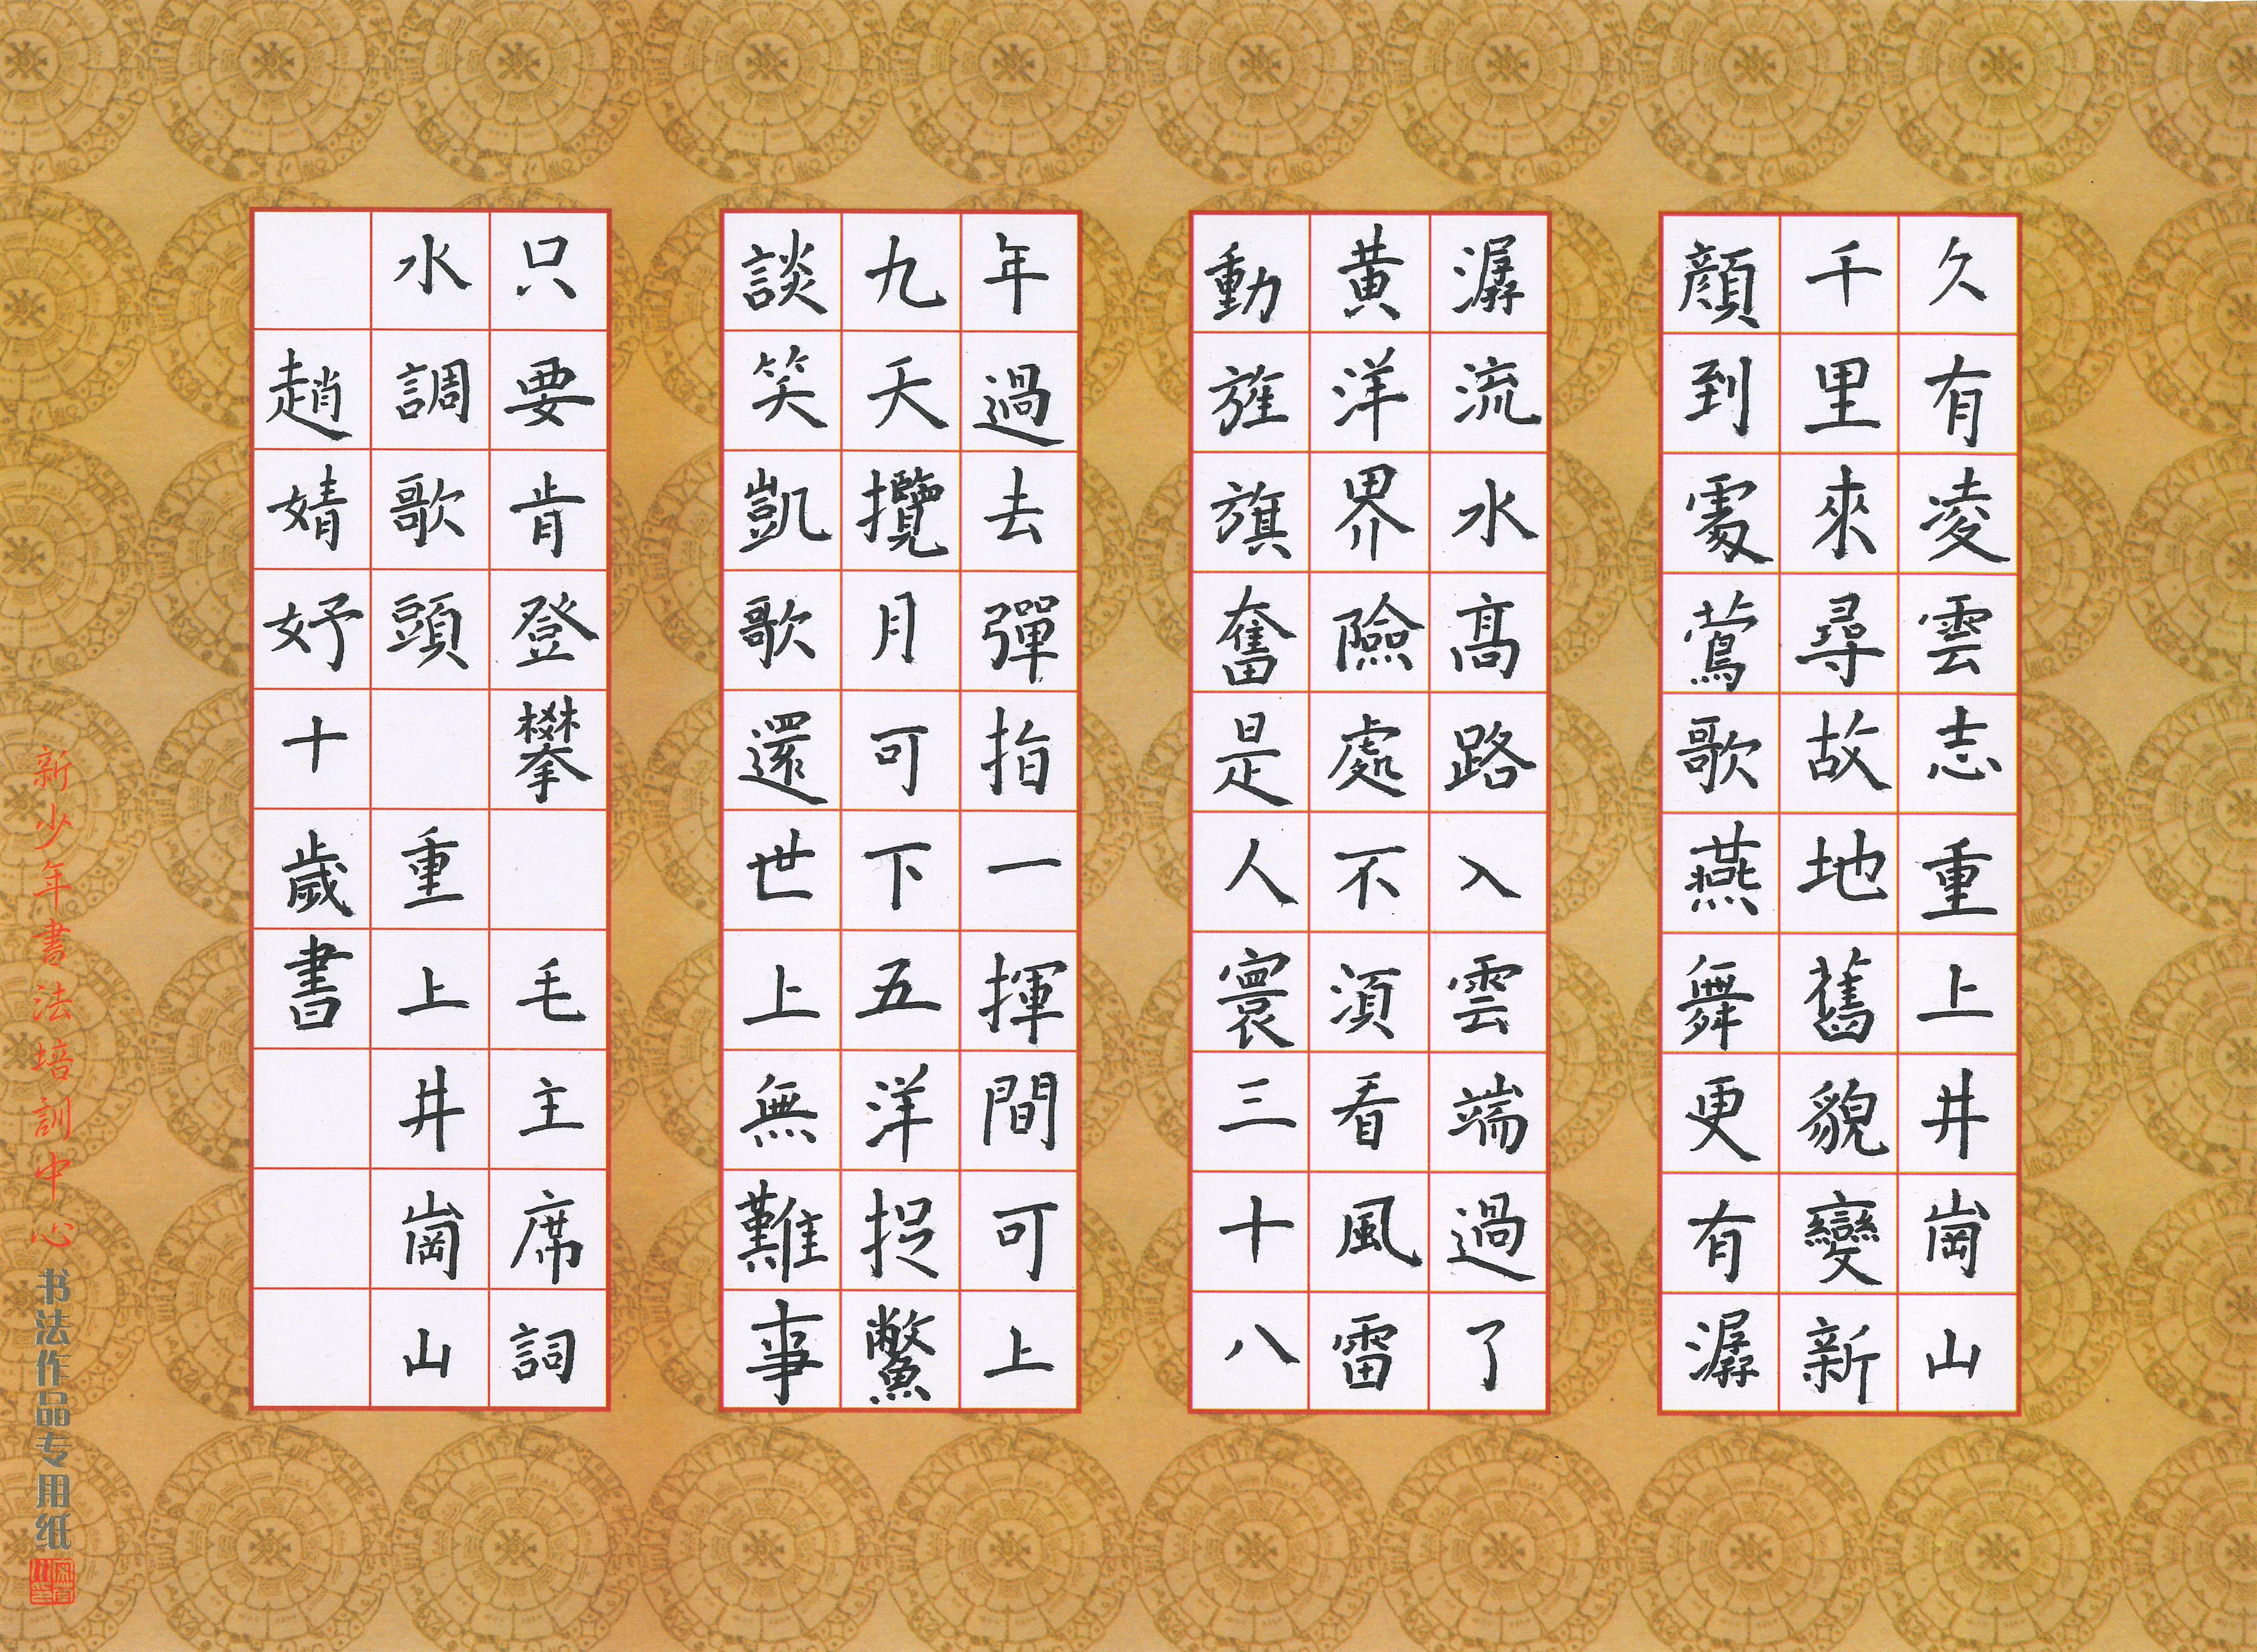 久有凌雲志重上井崗山
千里來尋故地舊貌變新
顔到處鶯歌燕舞更有潺
潺流水髙路入雲端過了
黄洋界險處不湏看風雷
動旌旗奮是人寰三十八
年過去彈指一揮間可上
九天攬月可下五洋捉鱉
談笑凱歌還世上無難事
只要肯登攀 毛主席詞
水調歌頭 重上井崗山
趙婧妤十歲書
新少年書法培訓中心 书法作品专用纸